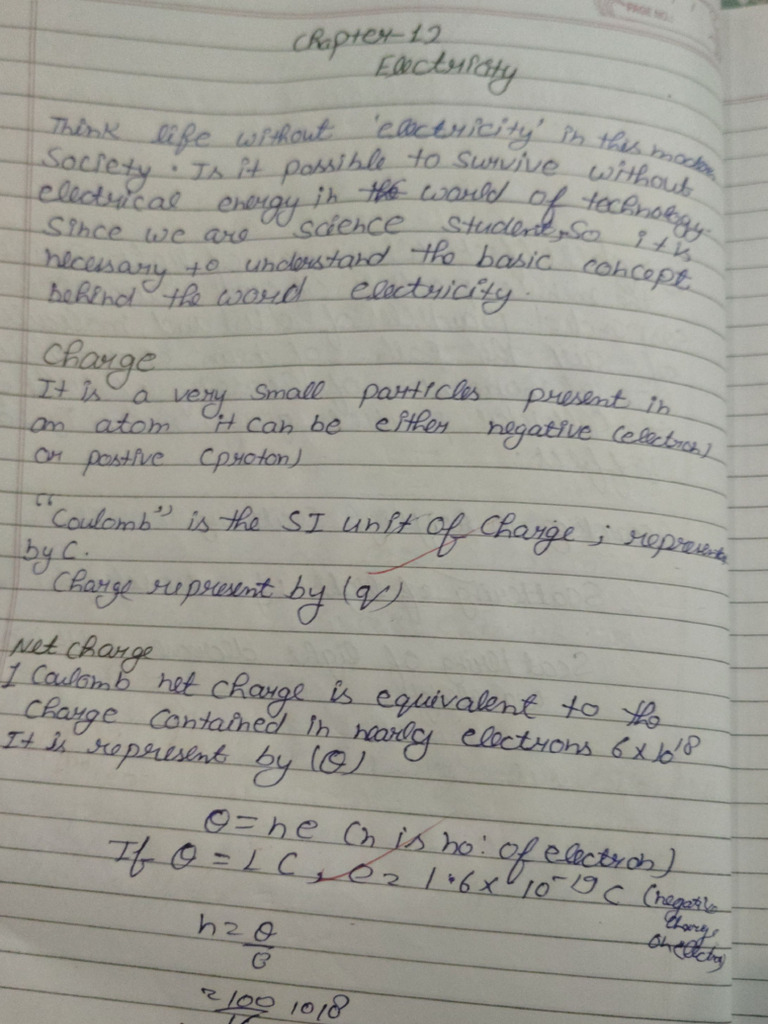 PAGE NO.
Chapter-12
Electricity
Think life without 'electricity' in this modern
Society. Is it possible to survive without
electrical energy in the world of technology.
Since we are science student, So it is
necessary to understand the basic concept
behind the word electricity.
Charge
It is a very small particles present in
an atom it can be either negative (electron)
or postive (proton)
"Coulomb" is the SI unit of Charge; represents
by C.
Charge represent by (q)
Net charge
1 Coulomb net charge is equivalent to the
Charge contained in nearly electrons 6 x 10^18
It is represent by (Q)
Q = ne (n is no: of electron)
If Q = 1 C, e = 1.6 x 10^-19 C (negative
Charge
on electron)
n = Q
e
= 100 10^18
16